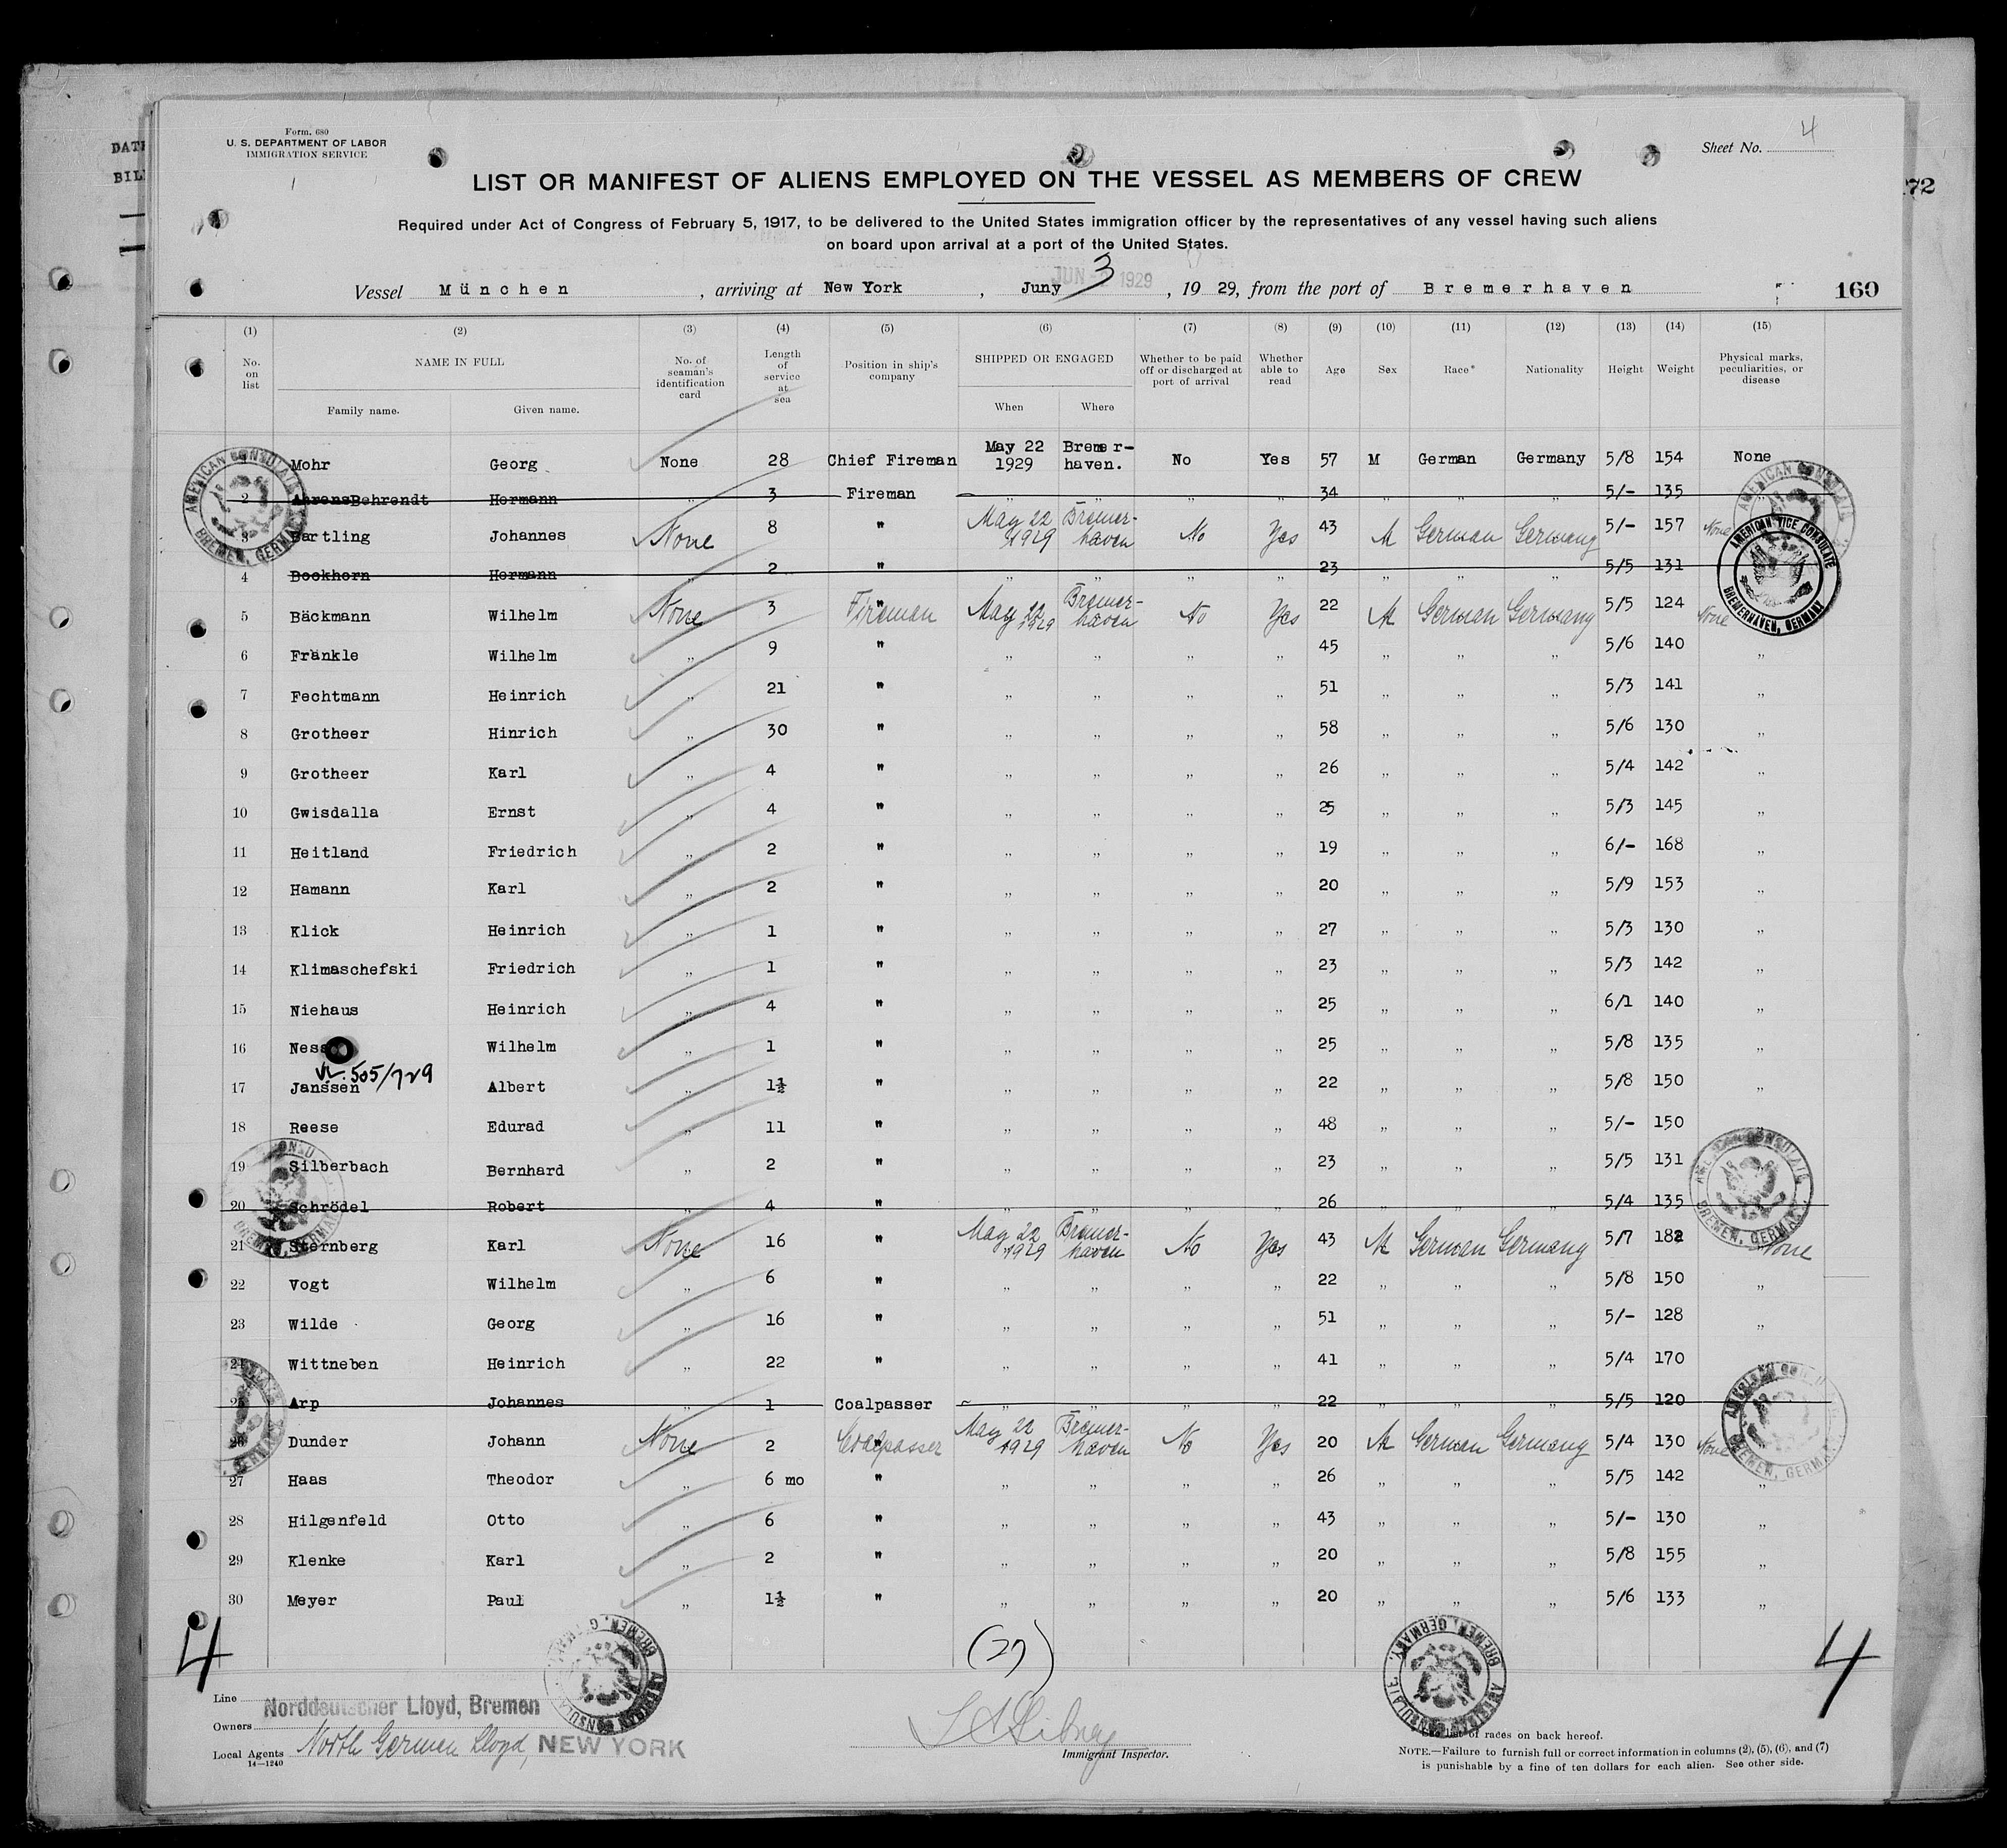 DATE
BIL
Form. 680
U. S. DEPARTMENT OF LABOR
IMMIGRATION SERVICE
Sheet No. 4
LIST OR MANIFEST OF ALIENS EMPLOYED ON THE VESSEL AS MEMBERS OF CREW
172
Required under Act of Congress of February 5, 1917, to be delivered to the United States immigration officer by the representatives of any vessel having such aliens
on board upon arrival at a port of the United States.
JUN 3 1929
Vessel München , arriving at New York , Juny 3 , 19 29, from the port of Bremerhaven 160
(1) (2) (3) (4) (5) (6) (7) (8) (9) (10) (11) (12) (13) (14) (15)
No. on list NAME IN FULL No. of seaman's identification card Length of service at sea Position in ship's company SHIPPED OR ENGAGED Whether to be paid off or discharged at port of arrival Whether able to read Age Sex Race* Nationality Height Weight Physical marks, peculiarities, or disease
Family name. Given name. When Where
1 Mohr Georg None 28 Chief Fireman May 22 1929 Bremer-haven. No Yes 57 M German Germany 5/8 154 None
2 AhrensBehrendt Hermann „ 3 Fireman „ „ „ „ 34 „ „ „ 5/- 135 „
3 Bartling Johannes None 8 " May 22 1929 Bremer-haven No Yes 43 M German Germany 5/- 157 None
4 Bockhorn Hermann „ 2 " „ „ „ „ 23 „ „ „ 5/5 131
5 Bäckmann Wilhelm None 3 " Fireman May 22 1929 Bremer-haven No Yes 22 M German Germany 5/5 124 None
6 Fränkle Wilhelm „ 9 " „ „ „ „ 45 „ „ „ 5/6 140 „
7 Fechtmann Heinrich „ 21 " „ „ „ „ 51 „ „ „ 5/3 141 „
8 Grotheer Hinrich „ 30 " „ „ „ „ 58 „ „ „ 5/6 130 „
9 Grotheer Karl „ 4 " „ „ „ „ 26 „ „ „ 5/4 142 „
10 Gwisdalla Ernst „ 4 " „ „ „ „ 25 „ „ „ 5/3 145 „
11 Heitland Friedrich „ 2 " „ „ „ „ 19 „ „ „ 6/- 168 „
12 Hamann Karl „ 2 " „ „ „ „ 20 „ „ „ 5/9 153 „
13 Klick Heinrich „ 1 " „ „ „ „ 27 „ „ „ 5/3 130 „
14 Klimaschefski Friedrich „ 1 " „ „ „ „ 23 „ „ „ 5/3 142 „
15 Niehaus Heinrich „ 4 " „ „ „ „ 25 „ „ „ 6/1 140 „
16 Ness Wilhelm „ 1 " „ „ „ „ 25 „ „ „ 5/8 135 „
505/729
17 Janssen Albert „ 1½ " „ „ „ „ 22 „ „ „ 5/8 150 „
18 Reese Edurad „ 11 " „ „ „ „ 48 „ „ „ 5/- 150 „
19 Silberbach Bernhard „ 2 " „ „ „ „ 23 „ „ „ 5/5 131
20 Schrödel Robert „ 4 " „ „ „ „ 26 „ „ „ 5/4 135
21 Sternberg Karl None 16 " May 22 1929 Bremer-haven No Yes 43 M German Germany 5/7 182 None
22 Vogt Wilhelm „ 6 " „ „ „ „ 22 „ „ „ 5/8 150 „
23 Wilde Georg „ 16 " „ „ „ „ 51 „ „ „ 5/- 128 „
24 Wittneben Heinrich „ 22 " „ „ „ „ 41 „ „ „ 5/4 170
25 Arp Johannes „ 1 Coalpasser „ „ „ „ 22 „ „ „ 5/5 120
26 Dunder Johann None 2 " Coalpasser May 22 1929 Bremer-haven No Yes 20 M German Germany 5/4 130 None
27 Haas Theodor „ 6 mo " „ „ „ „ 26 „ „ „ 5/5 142 „
28 Hilgenfeld Otto „ 6 " „ „ „ „ 43 „ „ „ 5/- 130 „
29 Klenke Karl „ 2 " „ „ „ „ 20 „ „ „ 5/8 155 „
30 Meyer Paul „ 1½ " „ „ „ „ 20 „ „ „ 5/6 133 „
AMERICAN CONSULATE BREMEN, GERMANY
AMERICAN VICE CONSULATE BREMERHAVEN, GERMANY
4 (27) 4
Line Norddeutscher Lloyd, Bremen
Owners
Local Agents North German Lloyd, NEW YORK
14—1240
Immigrant Inspector.
See list of races on back hereof.
NOTE.—Failure to furnish full or correct information in columns (2), (5), (6), and (7)
is punishable by a fine of ten dollars for each alien. See other side.